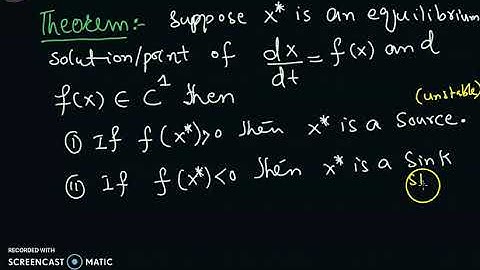 Theorem:- Suppose x* is an equilibrium
solution/point of dx/dt = f(x) and
f(x) ∈ C¹ then
(unstable)
(i) If f(x*)>0 then x* is a source.
(ii) If f(x*)<0 then x* is a sink
st
RECORDED WITH
SCREENCAST MATIC